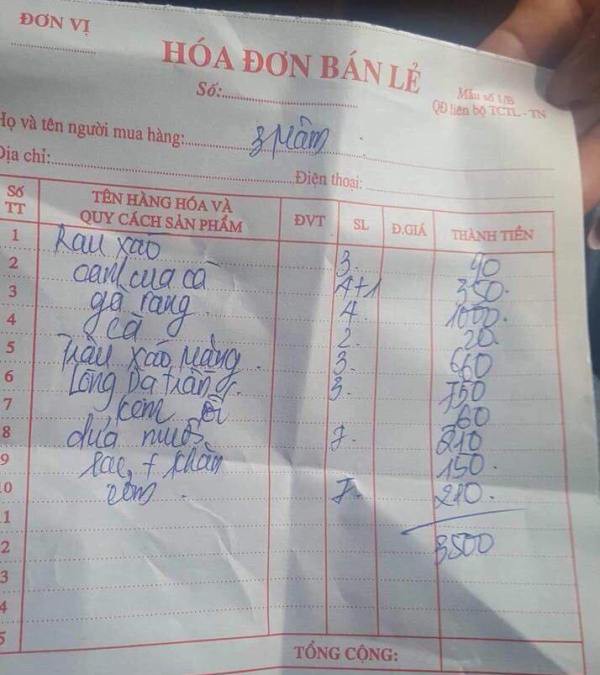 ĐƠN VỊ
HÓA ĐƠN BÁN LẺ
Số:
Mẫu số 1/B
QĐ liên bộ TCTL - TN
Họ và tên người mua hàng: 3 mâm
Địa chỉ: Điện thoại:
Số TT TÊN HÀNG HÓA VÀ QUY CÁCH SẢN PHẨM ĐVT SL Đ.GIÁ THÀNH TIỀN
1 Rau xào 3 90
2 canh cua cà 4+1 350
3 gà rang 4 1000
4 cà 2 20
5 Trâu xào măng 3 660
6 Lòng Dạ Tràng 3 750
7 kem 60
8 dứa nướ 7 210
9 rác + khăn 150
10 cơm 7 210
11
12 3500
13
14
15
TỔNG CỘNG: